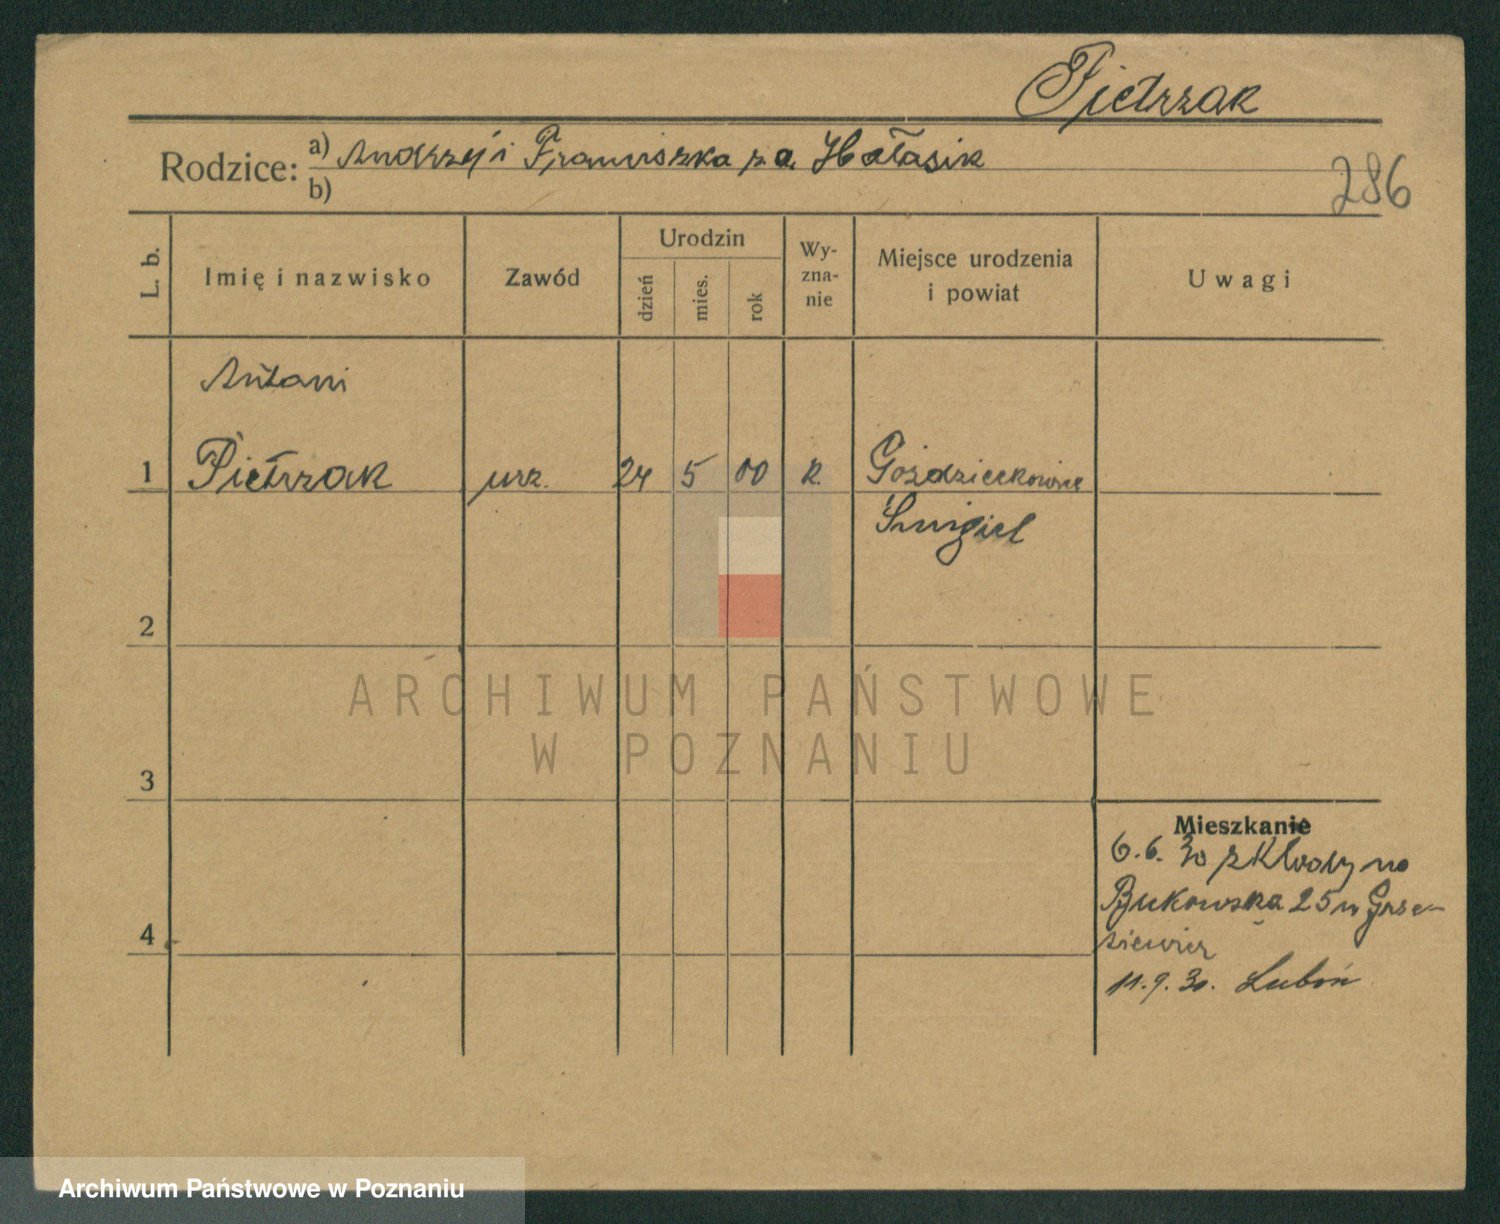 Pietrzak
Rodzice: a) Andrzej i Franciszka z d. Hałasik
b)
286
L. b.
Imię i nazwisko
Zawód
Urodzin
dzień
mies.
rok
Wy-
zna-
nie
Miejsce urodzenia
i powiat
Uwagi
Antoni
1 Pietrzak urz. 24 5 00 k.
Śmigiel
2
3
4
Mieszkanie
6.6.30 z Kłody na
Bukowska 25
11.9.30. Lubiń
ARCHIWUM PAŃSTWOWE
W POZNANIU
Archiwum Państwowe w Poznaniu